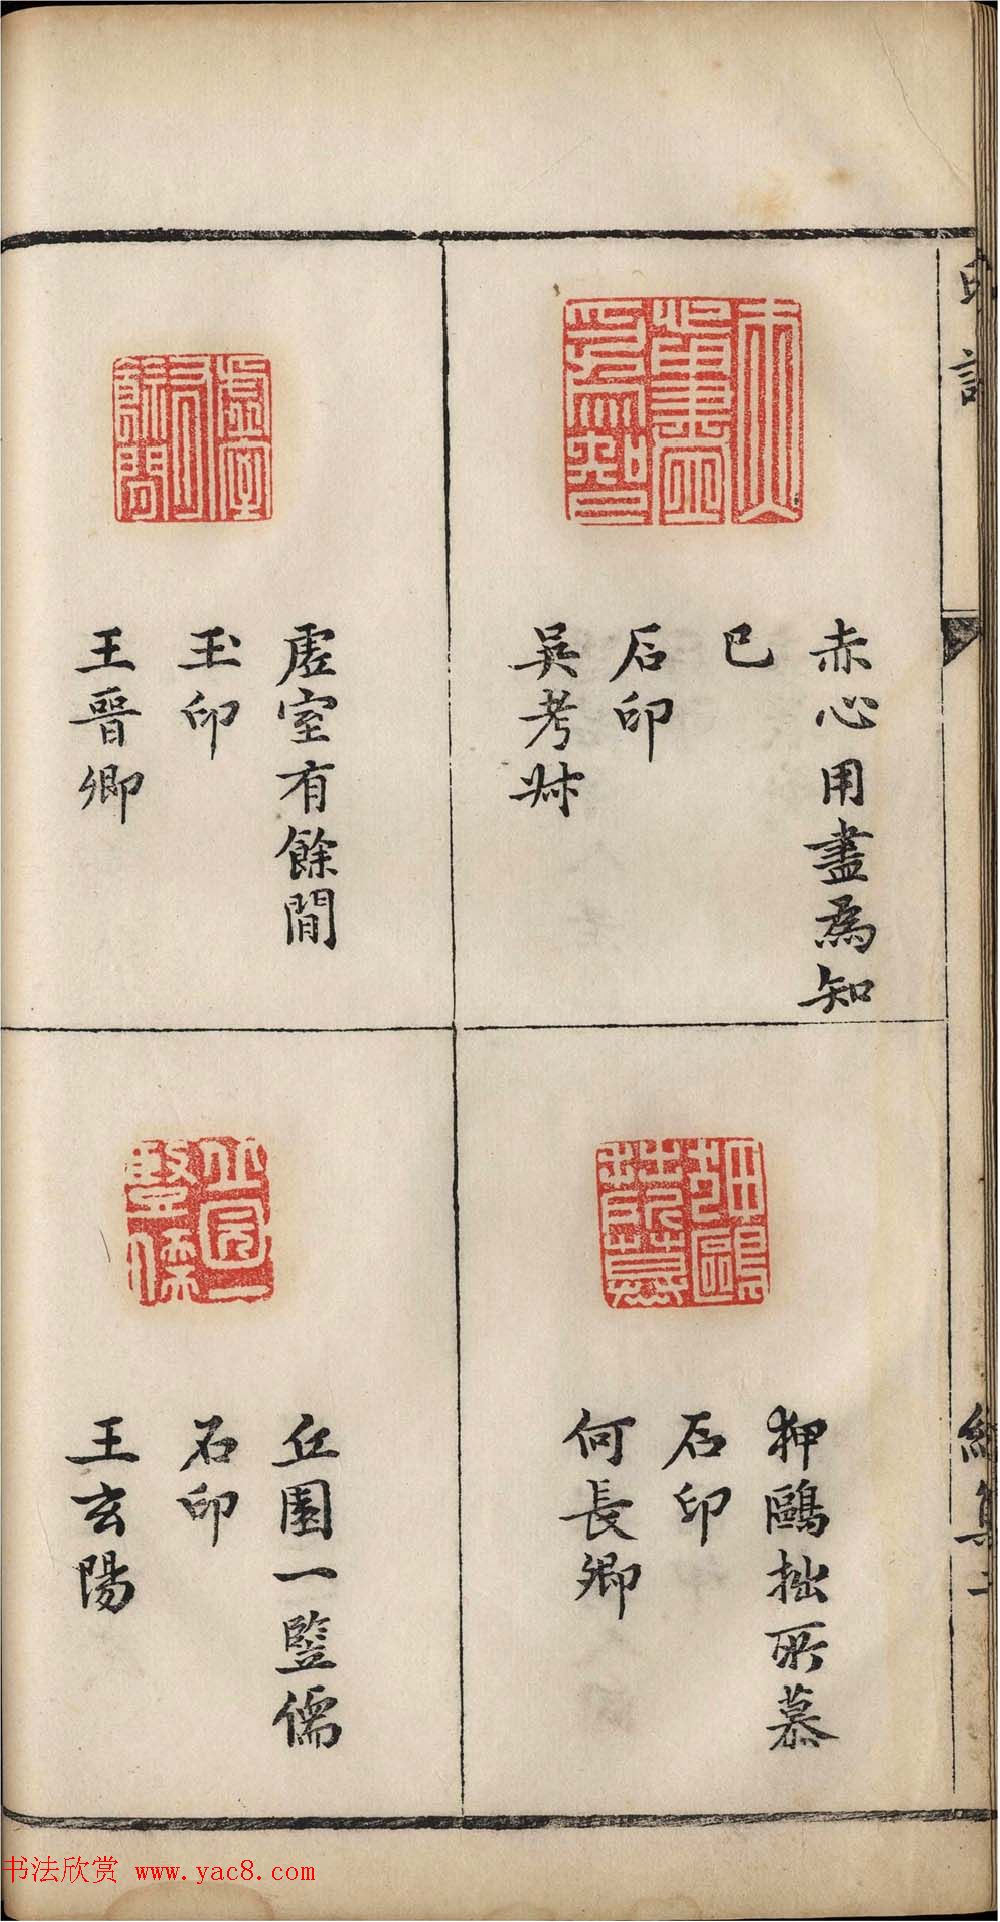 赤心用盡為知
已
石印
吳考叔
狎鷗拙所慕
石印
何長卿
虛室有餘閒
玉印
王晉卿
丘園一豎儒
石印
王玄陽
书法欣赏 www.yac8.com